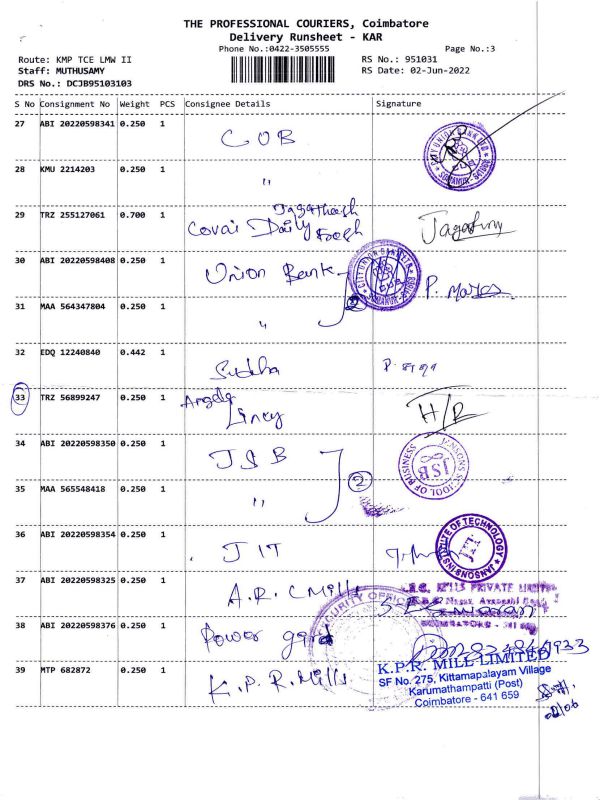 THE PROFESSIONAL COURIERS, Coimbatore
Delivery Runsheet - KAR
Phone No.:0422-3505555
Page No.:3
Route: KMP TCE LMW II
RS No.: 951031
Staff: MUTHUSAMY
RS Date: 02-Jun-2022
DRS No.: DCJB95103103
S No Consignment No Weight PCS Consignee Details Signature
27 ABI 20220598341 0.250 1 COB
CITY UNION BANK LTD
CUB
28 KMU 2214203 0.250 1 "
29 TRZ 255127061 0.700 1 Jagatheesh
Covai Daily Fresh
30 ABI 20220598408 0.250 1 Union Bank
CITY UNION BANK LTD
CUB
2
31 MAA 564347804 0.250 1 "
32 EDQ 12240840 0.442 1 Sudha
33 TRZ 56899247 0.250 1 Angela
Lincy H/R
34 ABI 20220598350 0.250 1 JSB
JANSONS SCHOOL OF BUSINESS
JSB
2
35 MAA 565548418 0.250 1 "
36 ABI 20220598354 0.250 1 JIT
JANSONS INSTITUTE OF TECHNOLOGY
JIT
37 ABI 20220598325 0.250 1 A.R.C Mills
MILLS PRIVATE LIMITED
SECURITY OFFICE
38 ABI 20220598376 0.250 1 Power gard
39 MTP 682872 0.250 1 K.P.R. Mills
K.P.R. MILL LIMITED
SF No. 275, Kittamapalayam Village
Karumathampatti (Post)
Coimbatore - 641 659
02/06